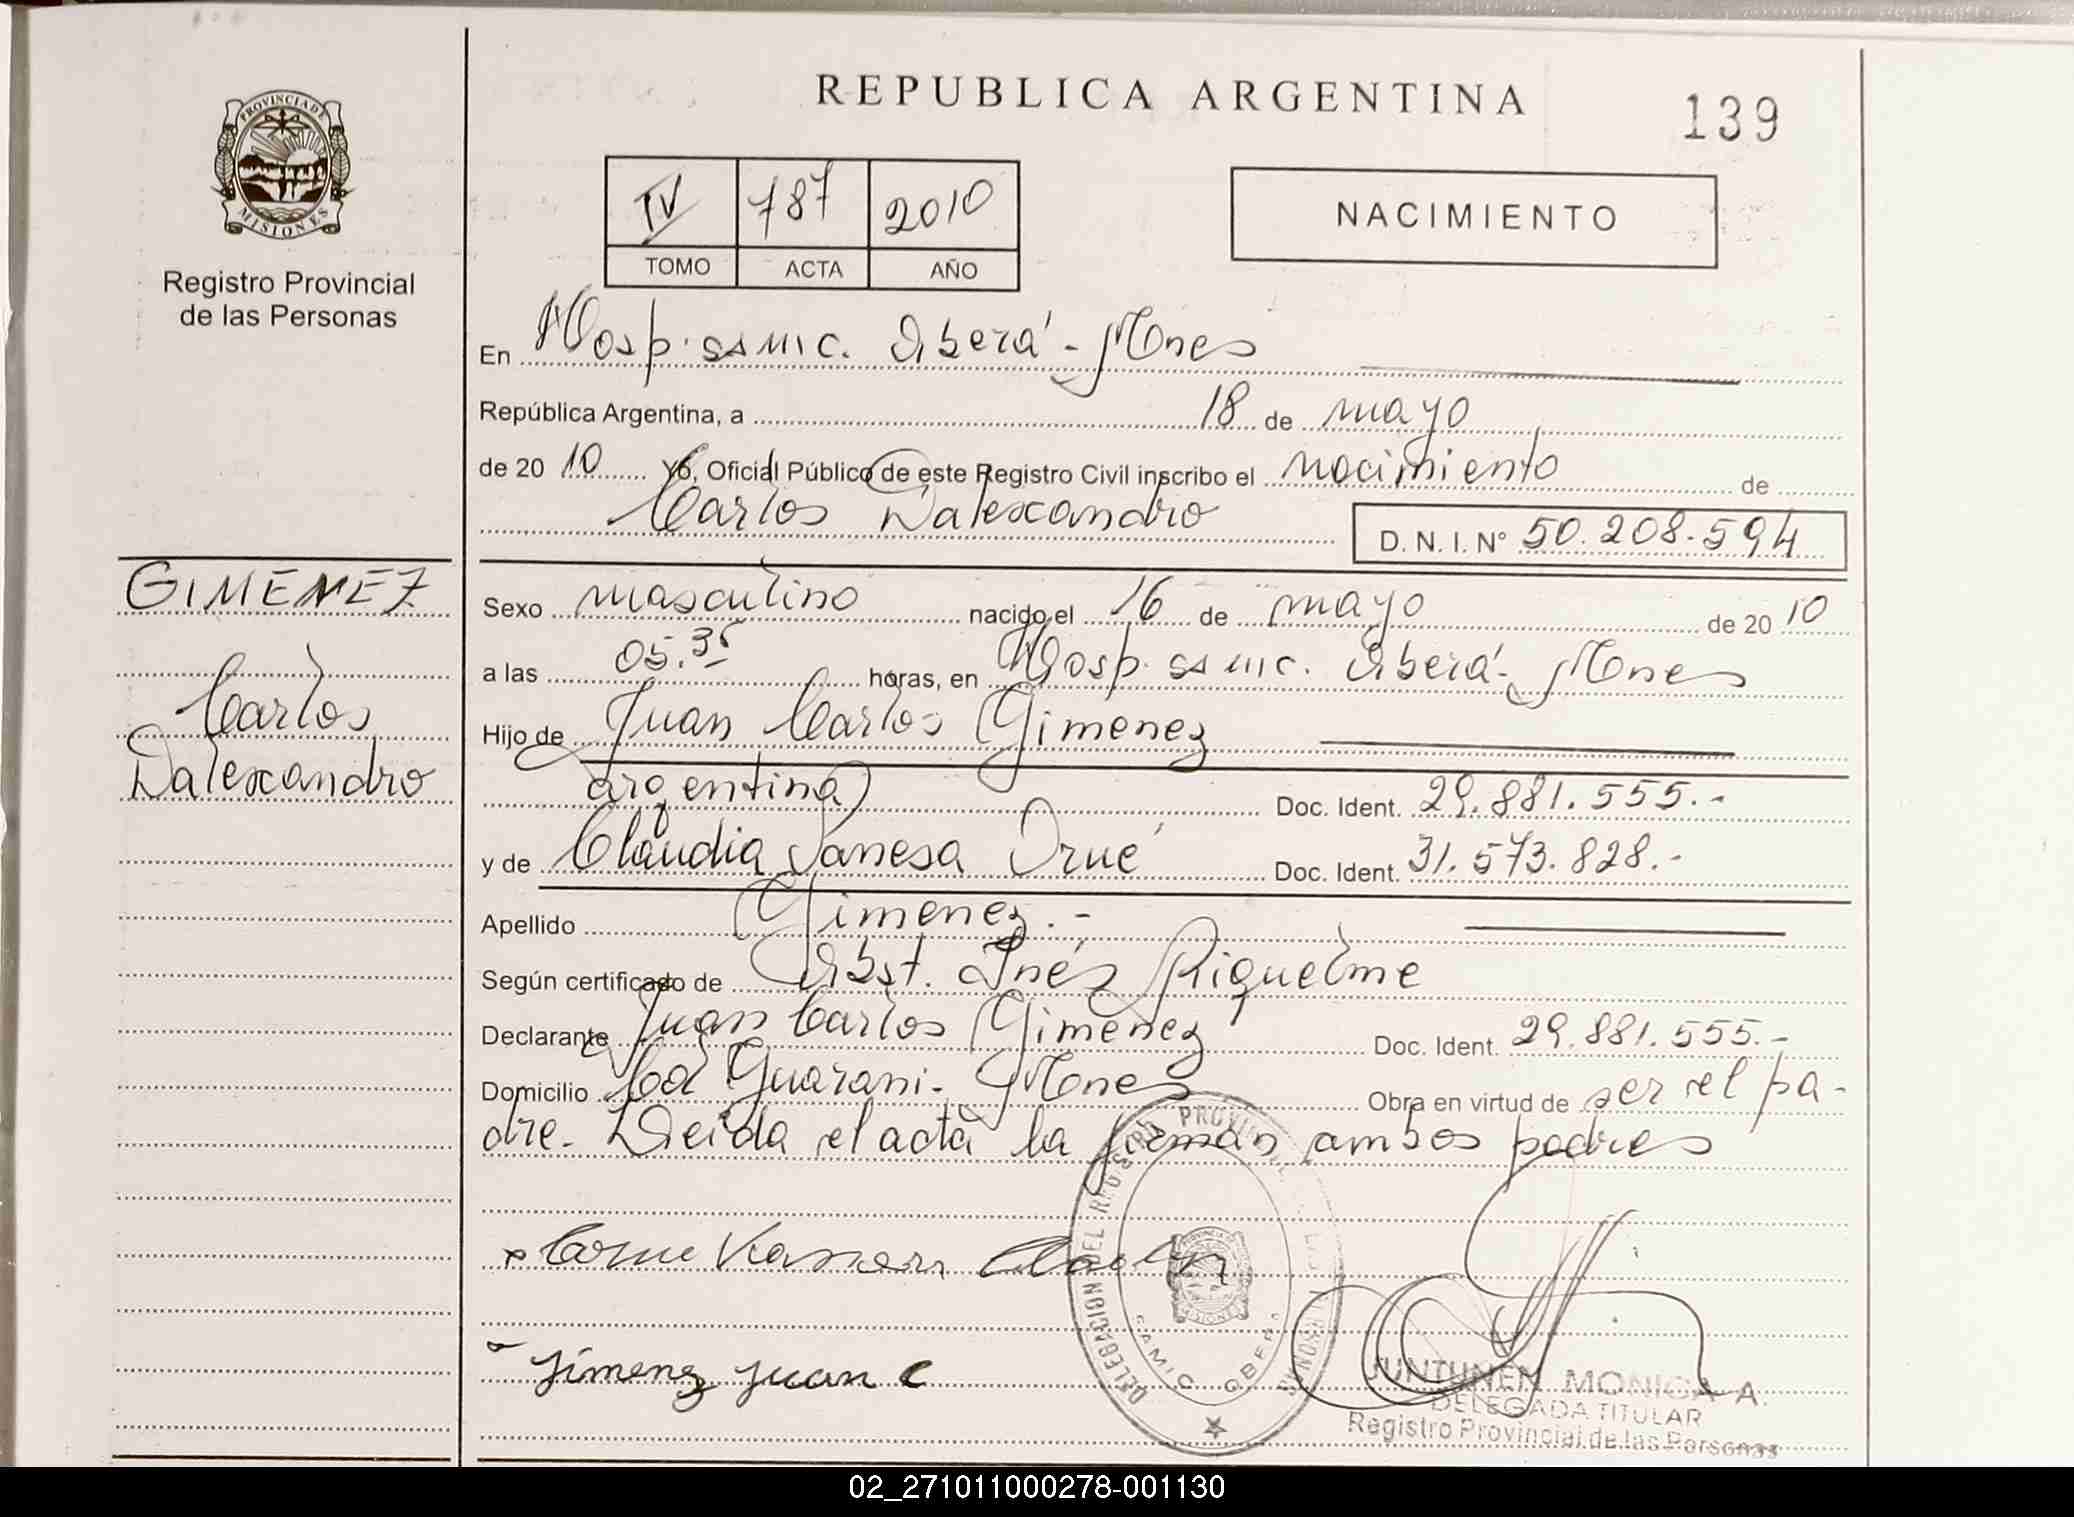 REPUBLICA ARGENTINA
139
PROVINCIA DE
MISIONES
Registro Provincial
de las Personas
IV 787 2010
TOMO ACTA AÑO
NACIMIENTO
En Hosp. SAMIC. Oberá - Mnes
República Argentina, a 18 de mayo
de 20 10 Yo, Oficial Público de este Registro Civil inscribo el nacimiento de
Carlos Dalexandro
D. N. I. N° 50.208.594
GIMENEZ
Carlos
Dalexandro
Sexo masculino nacido el 16 de mayo de 20 10
a las 05.35 horas, en Hosp. SAMIC. Oberá - Mnes
Hijo de Juan Carlos Gimenez
argentina Doc. Ident. 29.881.555.-
y de Claudia Vanesa Orué Doc. Ident. 31.573.828.-
Apellido Gimenez.-
Según certificado de Obst. Inés Riquelme
Declarante Juan Carlos Gimenez Doc. Ident. 29.881.555.-
Domicilio Guarani - Mnes Obra en virtud de ser el pa-
dre. Leida el acta la firman ambos padres
DELEGACION DEL REGISTRO PROVINCIAL DE LAS PERSONAS
SAMIC OBERA
Jimenez Juan C
JUNTUNEN MONICA A.
DELEGADA TITULAR
Registro Provincial de las Personas
02_271011000278-001130